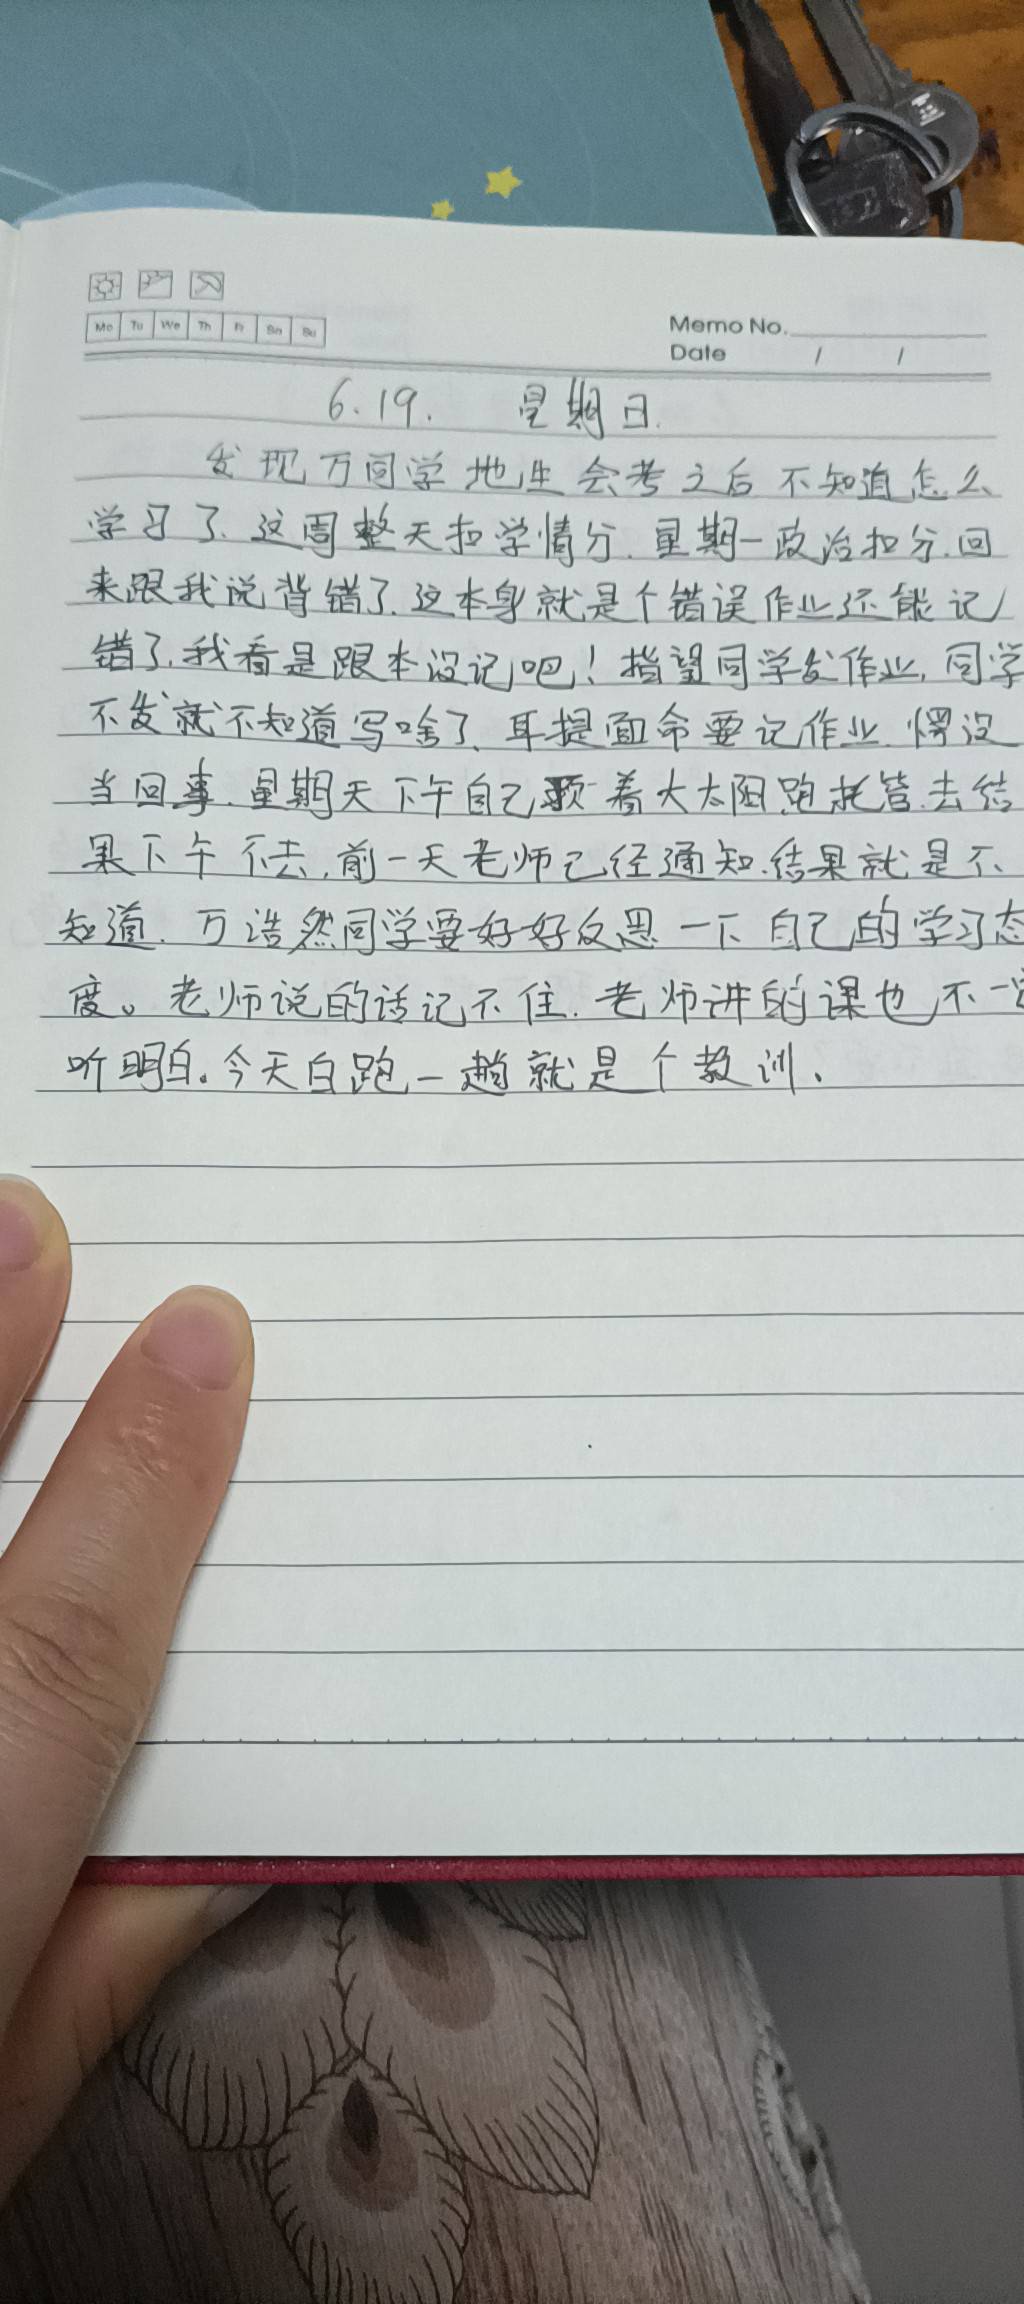 Mo Tu We Th Fr Sa Su
Memo No.
Date / /
6.19. 星期日.
发现万同学地生会考之后不知道怎么
学习了.这周整天扣学情分.星期一政治扣分.回
来跟我说背错了.这本身就是个错误作业还能记
错了.我看是跟本没记吧!指望同学发作业,同学
不发就不知道写啥了.耳提面命要记作业.愣没
当回事.星期天下午自己顶着大太阳跑托管.去结
果下午不去,前一天老师已经通知.结果就是不
知道.万浩然同学要好好反思一下自己的学习态
度。老师说的话记不住.老师讲的课也不一定
听明白。今天白跑一趟就是个教训、